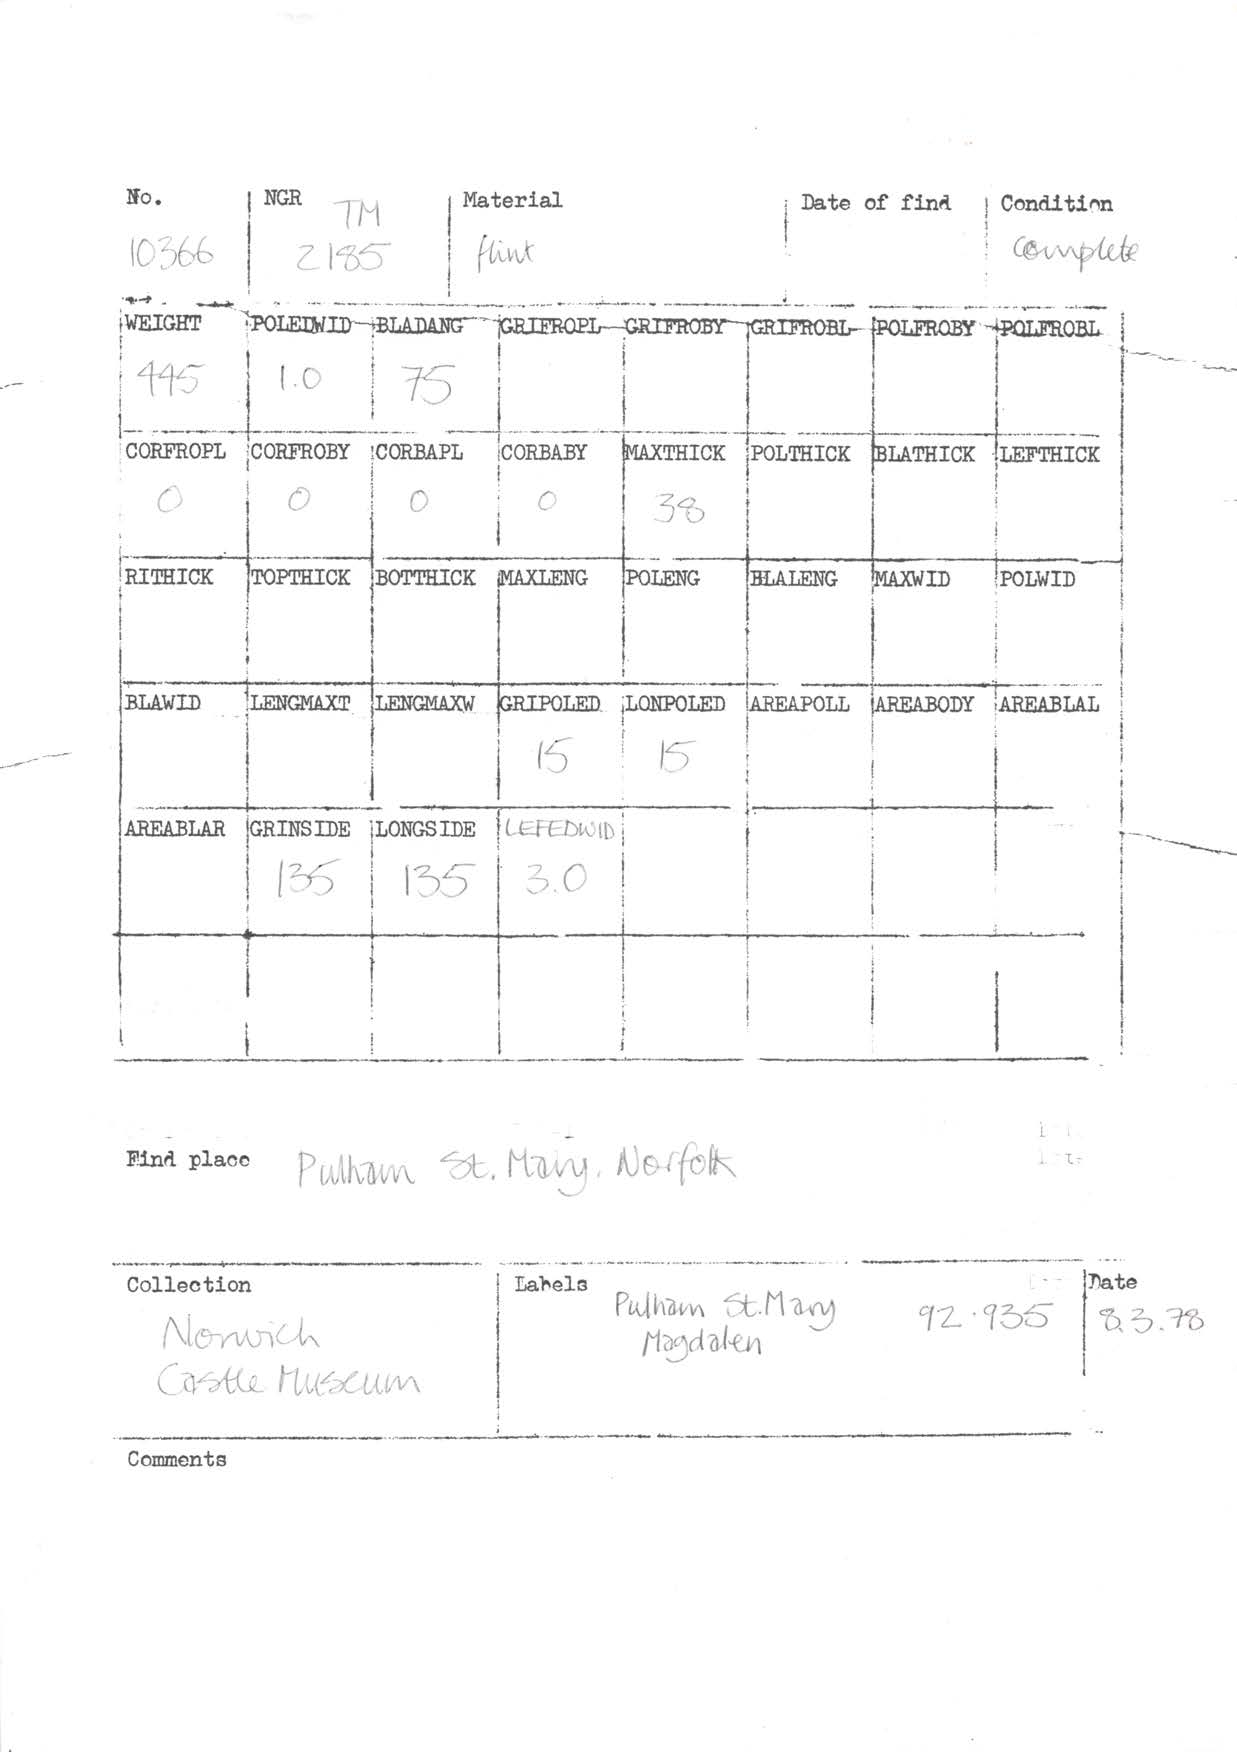 No. NGR Material Date of find Condition
TM
10366 2185 flint complete
WEIGHT POLEDWID BLADANG GRIFROPL GRIFROBY GRIFROBL POLFROBY POLFROBL
445 1.0 75
CORFROPL CORFROBY CORBAPL CORBABY MAXTHICK POLTHICK BLATHICK LEFTHICK
0 0 0 0 38
RITHICK TOPTHICK BOTTHICK MAXLENG POLENG BLALENG MAXWID POLWID
BLAWID LENGMAXT LENGMAXW GRIPOLED LONPOLED AREAPOLL AREABODY AREABLAL
15 15
AREABLAR GRINSIDE LONGSIDE LEFEDWID
135 135 3.0
Find place Pulham St. Mary. Norfolk
Collection Labels Date
Pulham St. Mary 92.935 8.3.78
Magdalen
Norwich
Castle Museum
Comments